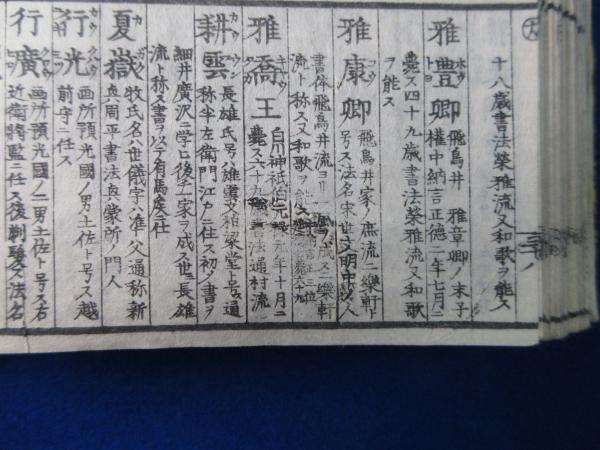 十八歳書法榮雅流又和歌ヲ能ス
雅豊卿 飛鳥井 雅章卿ノ末子
權中納言正德二年七月二
薨ス四十九歳書法榮雅流又和歌
ヲ能ス
雅康卿 飛鳥井家ノ庶流二樂軒ト
号ス法名宋世文明中ノ人
書体飛鳥井流ヨリ 風ヲ成ス二樂軒
流ト称ス又和歌ヲ能ス
雅喬王 白川神祇伯元禄元年十月二
薨ス六十九歳書法通村流
耕雲 長雄氏号ハ雄 梁堂ト号ス通
称半左衛門江戸ニ住ス初メ書ヲ
細井廣沢ニ学ヒ後チ一家ヲ成ス世長雄
流ト称ス書ヲ以テ有馬矦ニ仕
夏嶽 牧氏名ハ世儀字ハ準父通称新
兵周平書法眞蒙所ノ門人
行光 画所預光國ノ二男土佐ト号ス越
前守ニ任ス
行廣 画所預光國ノ一男土佐ト号ス右
近衛將監ニ任ス後剃髮ス法名